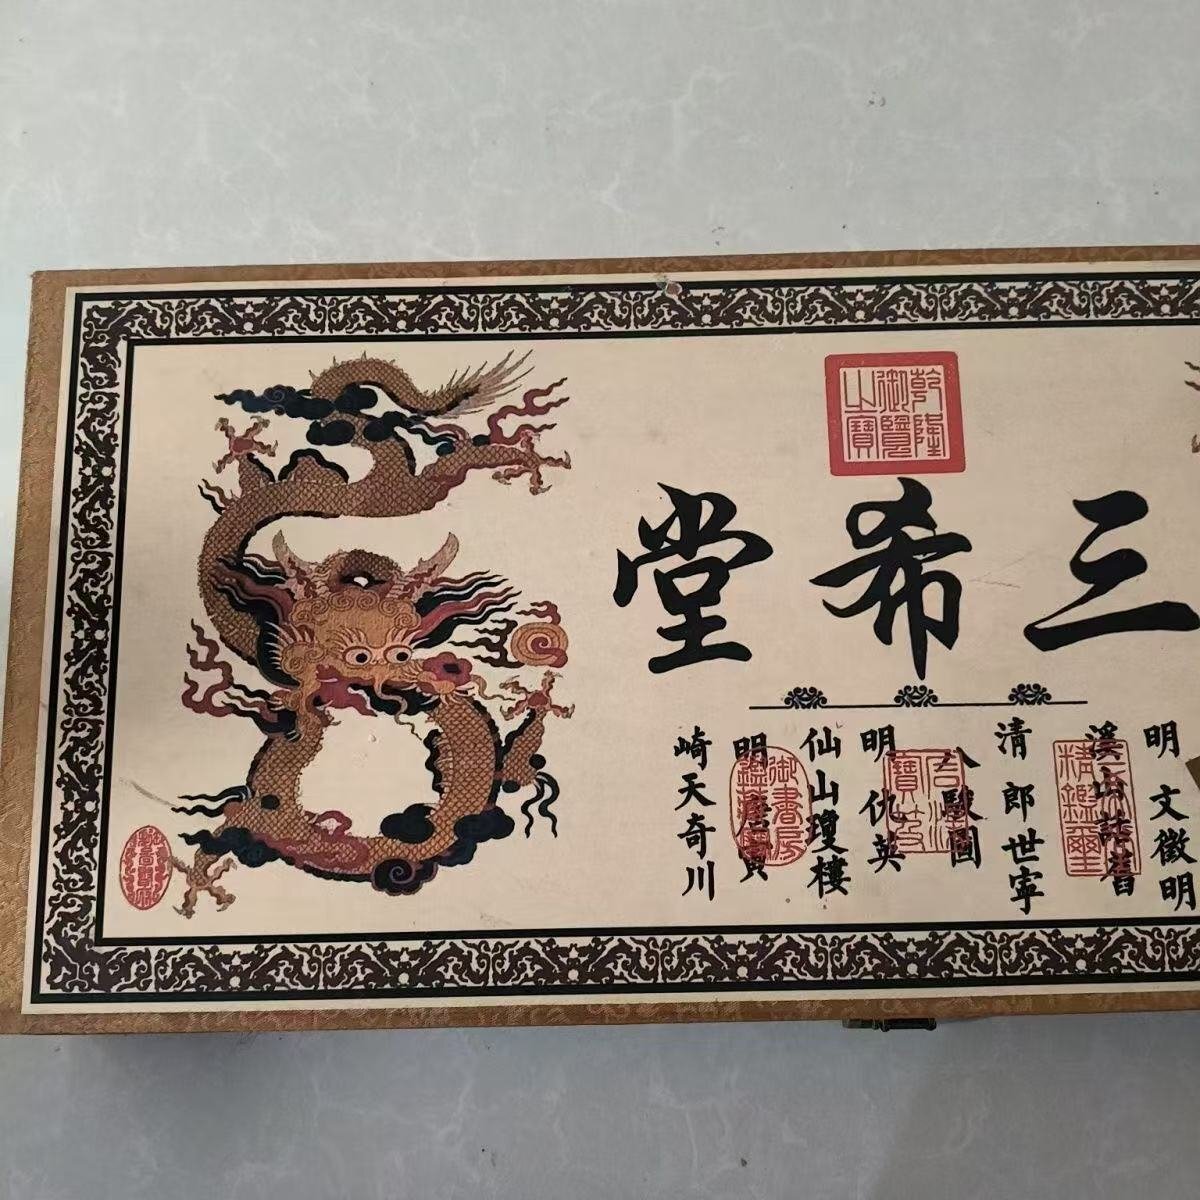 乾隆
御覽
之寶
三希堂
明 文徵明
溪山
清 郎世寧
八駿圖
明 仇英
仙山瓊樓
明 唐寅
崎天奇川
精鑑璽
石渠
寶笈
御書房
鑑藏寶